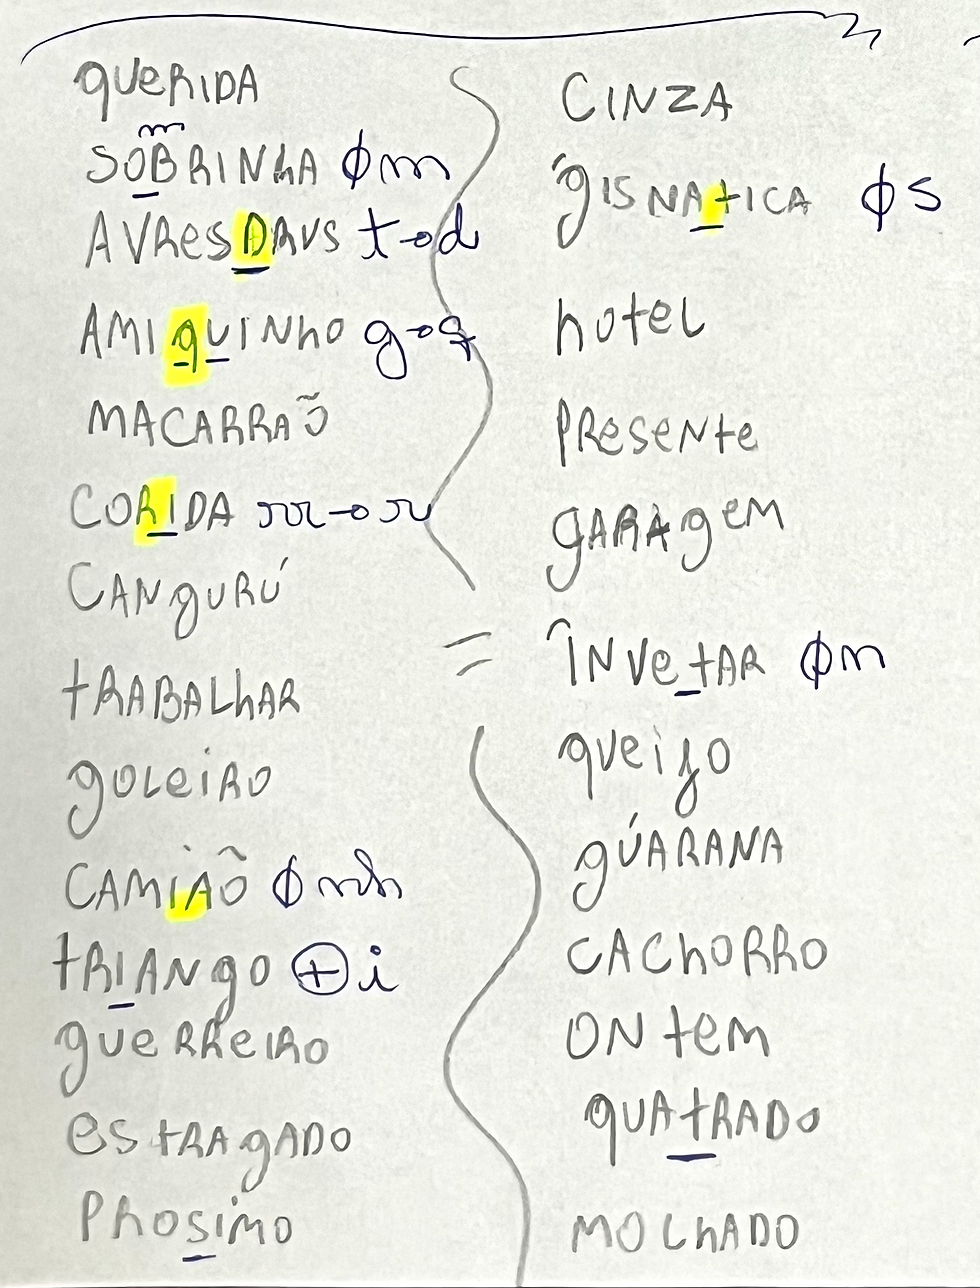 QUERIDA
m
SOBRINHA ϕm
AVRESDRUS t→d
AMIQUINHO g→q
MACARRAÕ
CORIDA rr→r
CANGURÚ
TRABALHAR
GOLEIRO
CAMIAÕ ϕ nh
TRIANGO ⊕i
GUERREIRO
ESTRAGADO
PROSIMO
CINZA
GISNATICA ϕs
HOTEL
PRESENTE
GARAGEM
= ÎNVETAR ϕn
QUEIJO
GÚARANA
CACHORRO
ONTEM
QUATRADO
MOLHADO